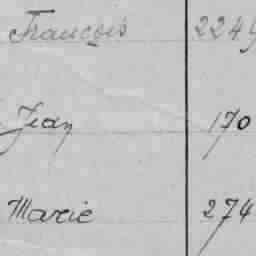 François 2249
Jean 170
Marie 274